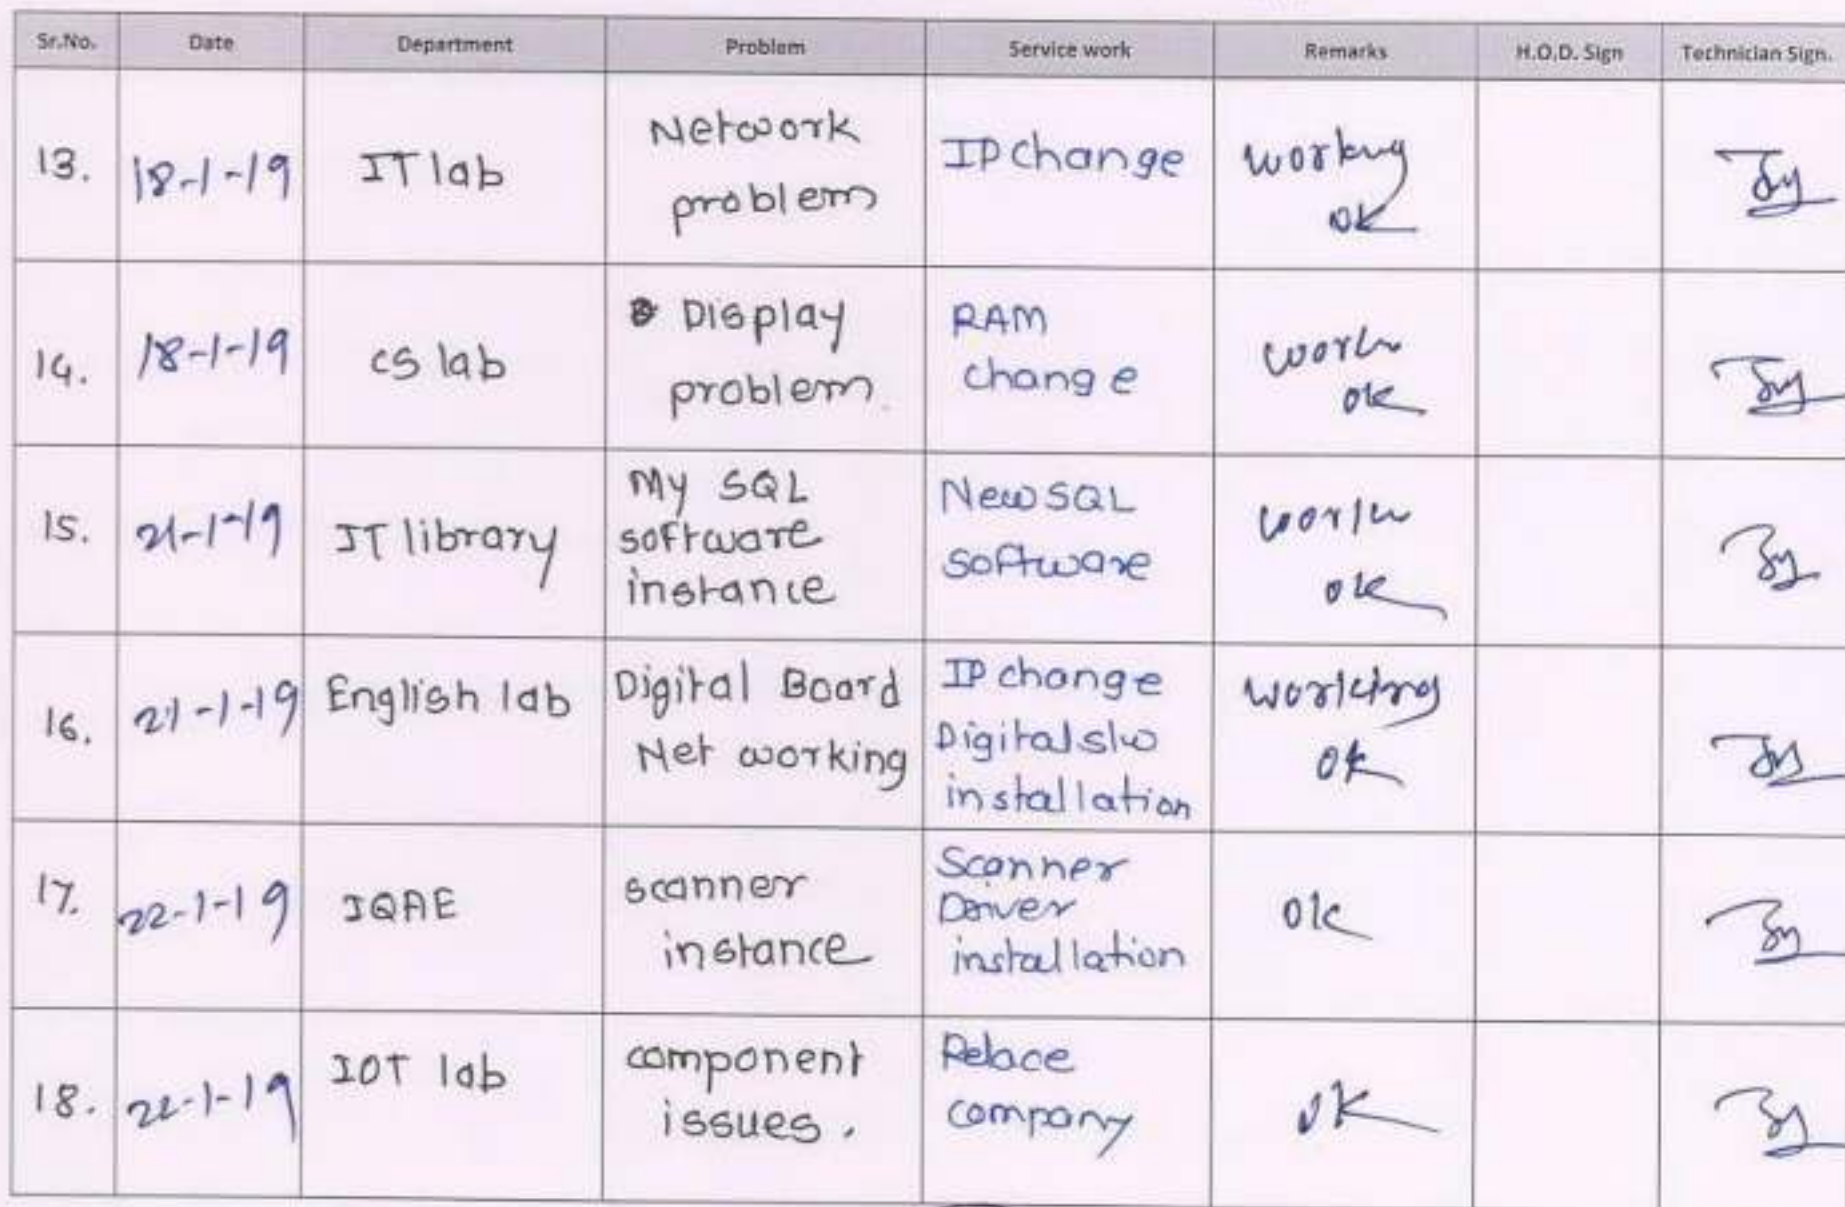 Sr.No. Date Department Problem Service work Remarks H.O.D. Sign Technician Sign.
13. 18-1-19 IT lab Network problem IP change working ok
14. 18-1-19 CS lab Display problem RAM change ok
15. 21-1-19 IT library My SQL software instance New SQL software ok
16. 21-1-19 English lab Digital Board Net working IP change Digital s/w installation working ok
17. 22-1-19 IQAE scanner instance Scanner Driver installation ok
18. 22-1-19 IOT lab component issues. Relace company ok